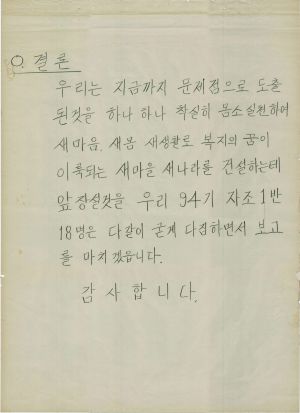 ○. 결론
우리는 지금까지 문제점으로 도출
된것을 하나 하나 착실히 몸소 실천하여
새마음, 새몸 새생활로 복지의 꿈이
이룩되는 새마을 새나라를 건설하는데
앞장설것을 우리 94기 자조1반
18명은 다같이 굳게 다짐하면서 보고
를 마치겠읍니다.
감사합니다.